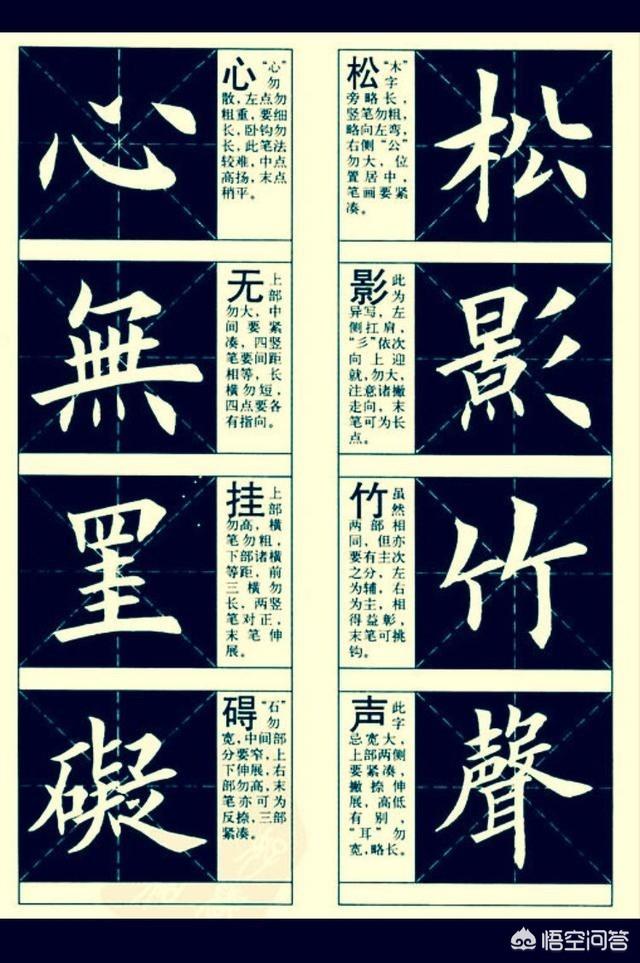 心
心 “心”
勿
散，左点勿
粗重，要细
长，卧钩勿
长，此笔法
较难，中点
高扬，末点
稍平。
無
无 上
部
勿大，中
间要紧
凑，四竖
笔要间距
相等，长
横勿短，
四点要各
有指向。
罣
挂 上
部
勿高，横
笔勿粗，
下部诸横
等距，前
三横勿
长，两竖
笔对正，
末笔伸
展。
礙
碍 “石”
勿
宽，中间部
分要窄，上
下伸展，右
部勿高，末
笔亦可为
反捺，三部
紧凑。
松 “木”
字
旁略长，
竖笔勿粗，
略向左弯，
右侧“公”
勿大，位
置居中，
笔画要紧
凑。
松
影 此
为
异写，左
侧扛肩，
“彡”依次
向上迎
就，勿大，
注意诸撇
走向，末
笔可为长
点。
影
竹 虽
然
两部相
同，但亦
要有主次
之分，左
为辅，右
为主，相
得益彰，
末笔可挑
钩。
竹
声 此
字
总宽大，
上部两侧
要紧凑，
撇捺伸
展，高低
有别，
“耳”勿
宽，略长。
聲
悟空问答